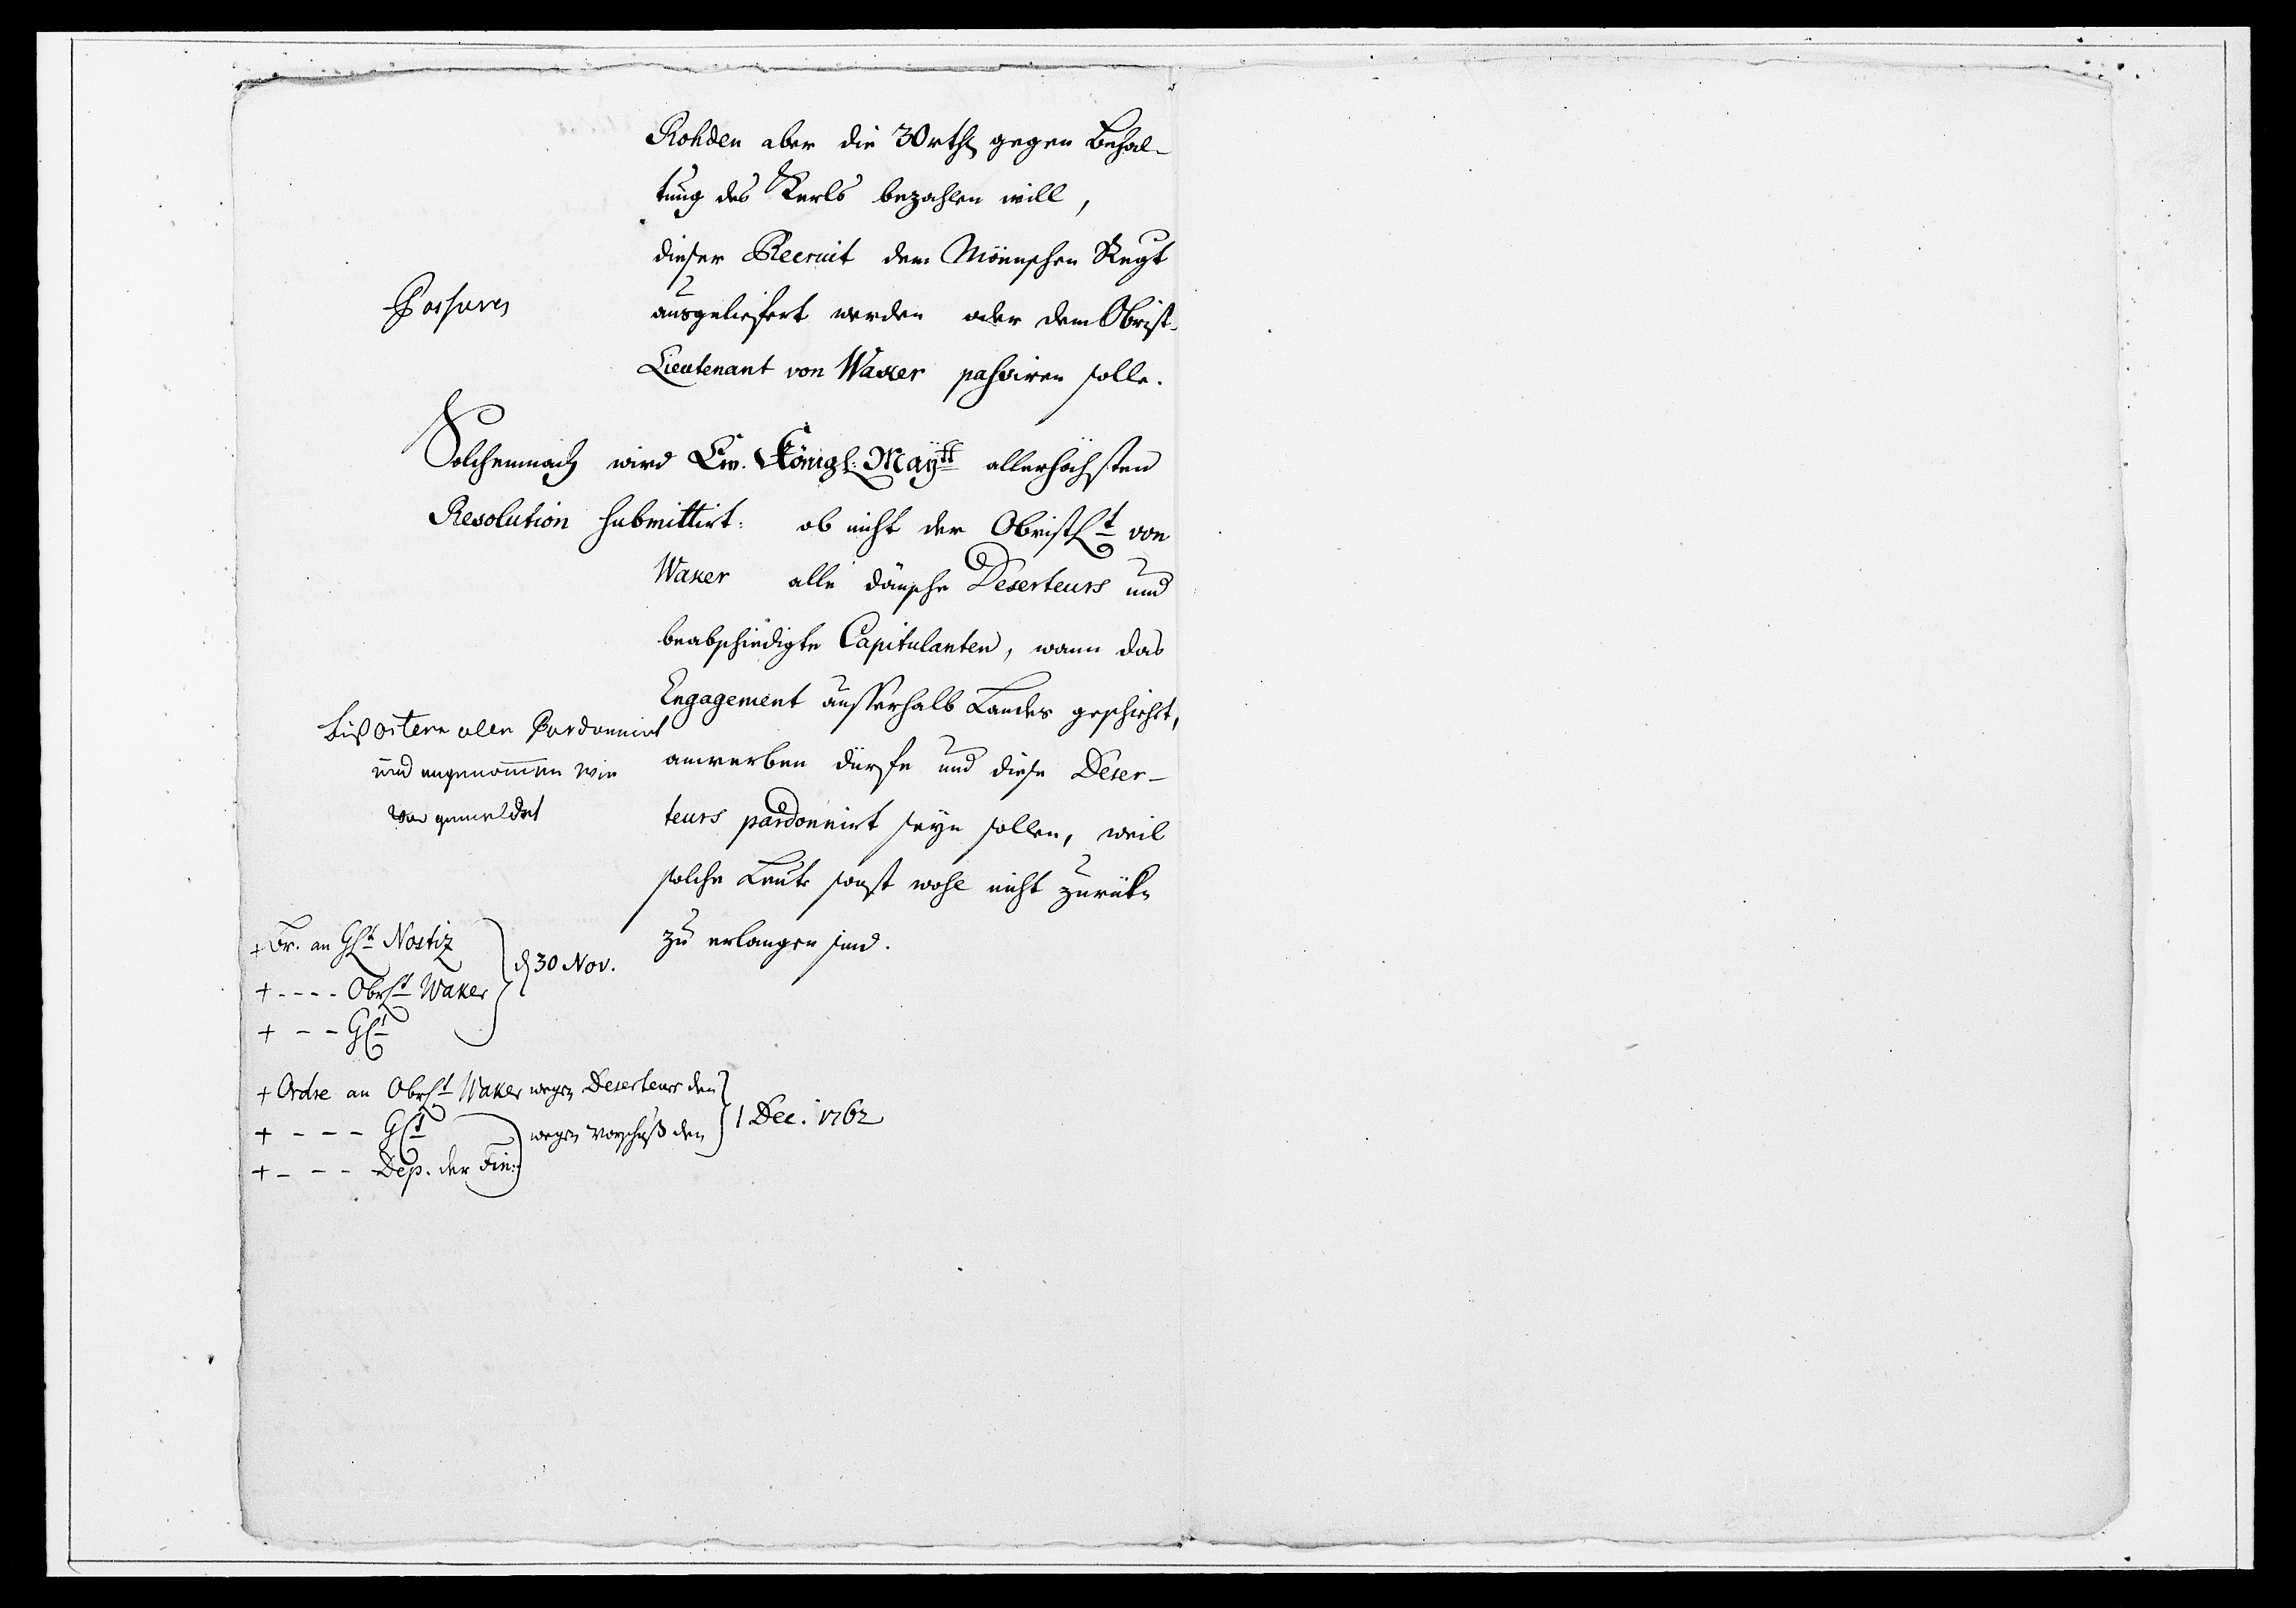 Rohden aber die 30 rthl gegen Behal-
tung des Kerls bezahlen will,
dieser Recruit dem Möenschen Regt
ausgeliefert werden oder dem Obrist-
Lieutenant von Waxer passiren solle.
Solchemnach wird Ew. Königl: Maytt allerhöchsten
Resolution submittirt: ob nicht der ObristLt von
Waxer alle dänsche Deserteurs und
beabschiedigte Capitulanten, wann das
Engagement ausserhalb Landes geschieht,
anwerben dürfe und diese Deser-
teurs pardonnirt seyn sollen, weil
solche Leute sonst wohl nicht zurük-
zu erlangen sind.
biß ostern allen Pardonnirt
und angenommen wie
vor gemeldet
+ Br. an GLt Nostiz
+ - - - - ObrLt Waxer
+ - - GCt
d 30 Nov.
+ Ordre an ObrLt Waxer wegen Deserteurs den
+ - - - - GCt
+ - - - Dep. der Fin:
wegen Vorschuß den
1 Dec. 1762